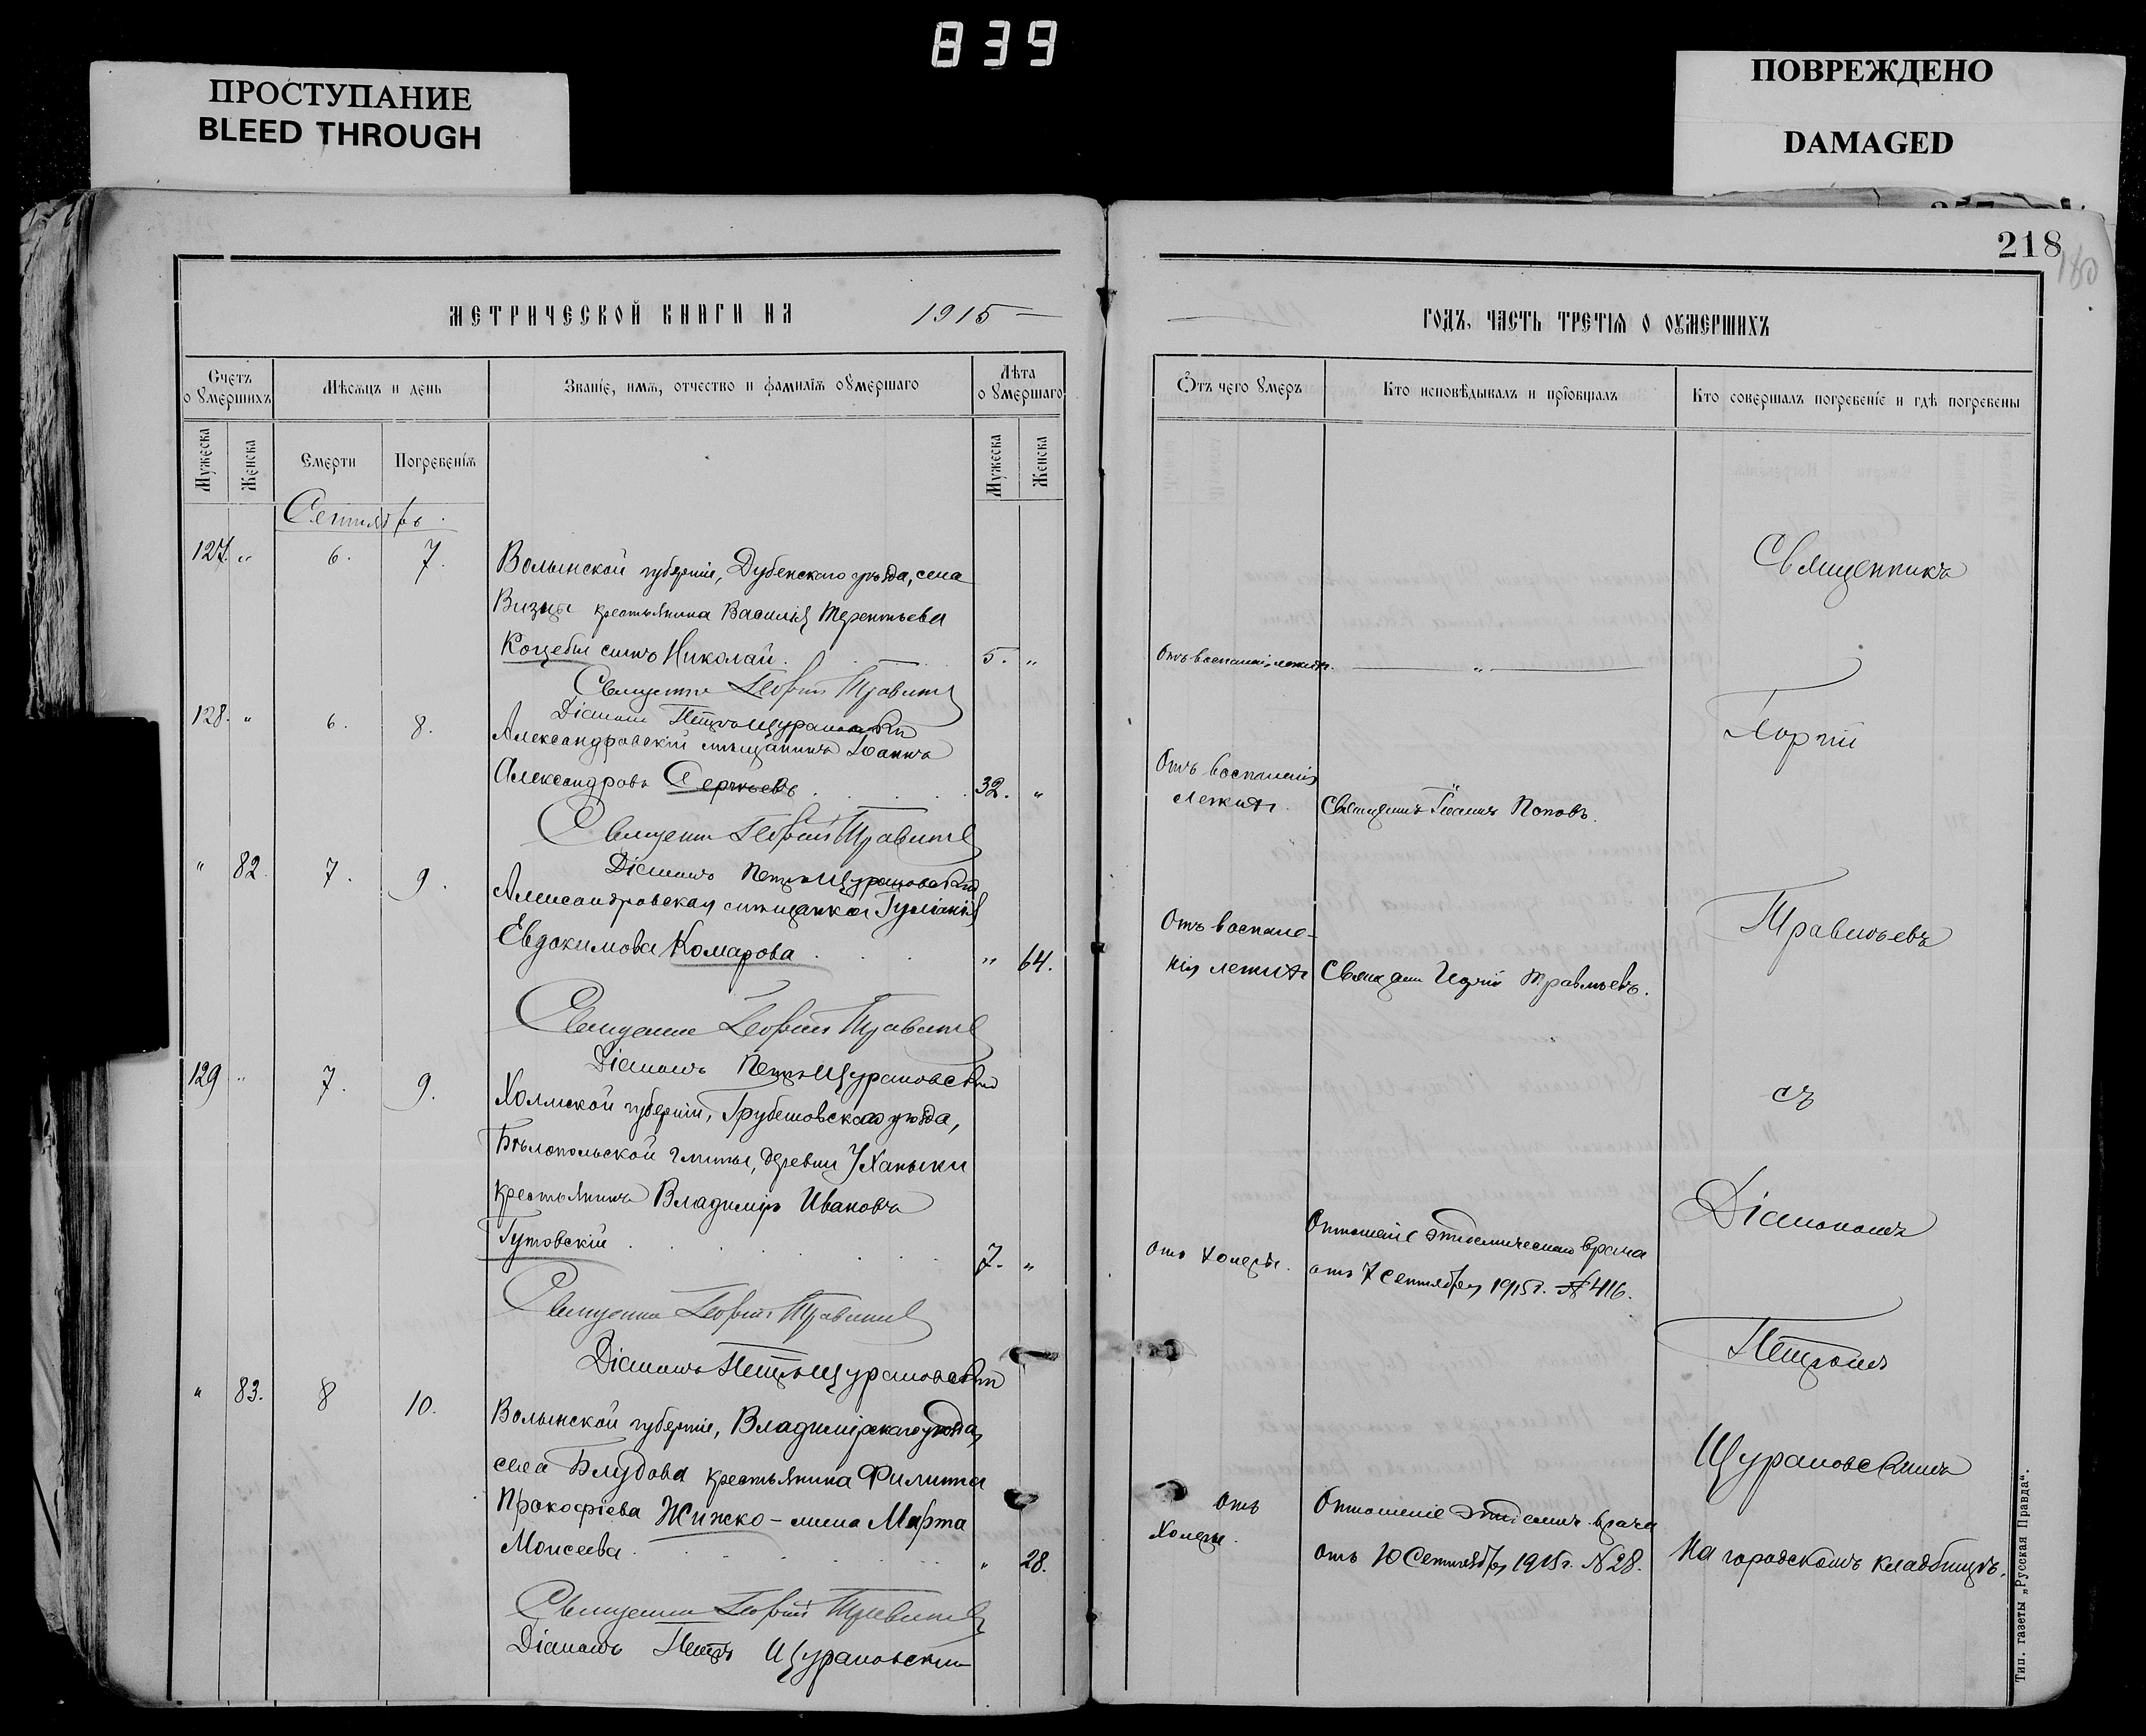 839
ПРОСТУПАНИЕ
BLEED THROUGH
ПОВРЕЖДЕНО
DAMAGED
218
180
МЕТРИЧЕСКОЙ КНИГИ НА 1915
ГОДЪ, ЧАСТЬ ТРЕТІѦ О ОУМЕРШИХЪ
Счетъ о ѹмершихъ
Мѣсѧцъ и день
Званіе, имѧ, отчество и фамиліѧ оумершаго
Лѣта оумершаго
Отъ чего ѹмеръ
Кто исповѣдывалъ и пріобщалъ
Кто совершалъ погребеніе и гдѣ погребены
Мужеска
Женска
Смерти
Погребеніѧ
Мужеска
Женска
Сентябрь.
127. „ 6. 7.
Волынской губерніи, Дубенскаго уѣзда, села
крестьянина Василія Терентьева
Коцеба сынъ Николай. 5. „
Отъ воспаленія легкихъ. „
Священникъ Георгій
Діаконъ Петръ Щурановскій
128. „ 6. 8.
Александровскій мѣщанинъ Іоаннъ
Александровъ Сергѣевъ 32. „
Отъ воспаленія
легкихъ.
Священникъ Іоаннъ Поповъ.
Священникъ Георгій
Діаконъ Петръ Щурановскій
„ 82. 7. 9.
Александровская мѣщанка Іуліанія
Евдокимова Комарова „ 64.
Отъ воспале-
нія легкихъ
Священникъ Георгій
Священникъ Георгій
Діаконъ Петръ Щурановскій
129 „ 7. 9.
Холмской губерніи, Грубешовскаго уѣзда,
Бѣлопольской гмины, деревни Уханьки
крестьянинъ Владиміръ Ивановъ
Гутовскій 7. „
отъ холеры.
Отношеніе эпидемическаго врача
отъ 7 Сентября 1915 г. № 416.
Священникъ Георгій
Діаконъ Петръ Щурановскій
„ 83. 8 10.
Волынской губерніи, Владимірскаго уѣзда,
села Блудова крестьянина Филиппа
Прокофіева Жижко - жена Марфа
Моисеева „ 28.
отъ
холеры.
Отношеніе эпидемич. врача
отъ 10 Сентября 1915 г. № 28.
Священникъ Георгій
Діаконъ Петръ Щурановскій
Священникъ
Георгій
съ
Діакономъ
Петромъ
Щурановскимъ
На городскомъ кладбищѣ.
Тип. газеты „Русская Правда“.